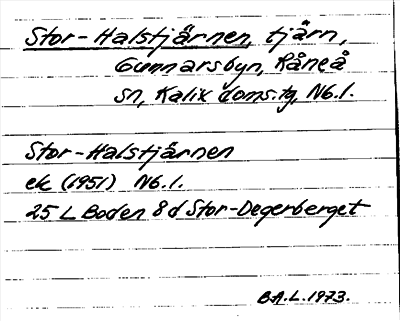 Stor-Halstjärnen, tjärn,
Gunnarsbyn, Råneå
sn, Kalix doms.tg, Nb.l.
Stor-Halstjärnen
ek (1951) Nb.l.
25 L Boden 8 d Stor-Degerberget
B.A.L. 1973.